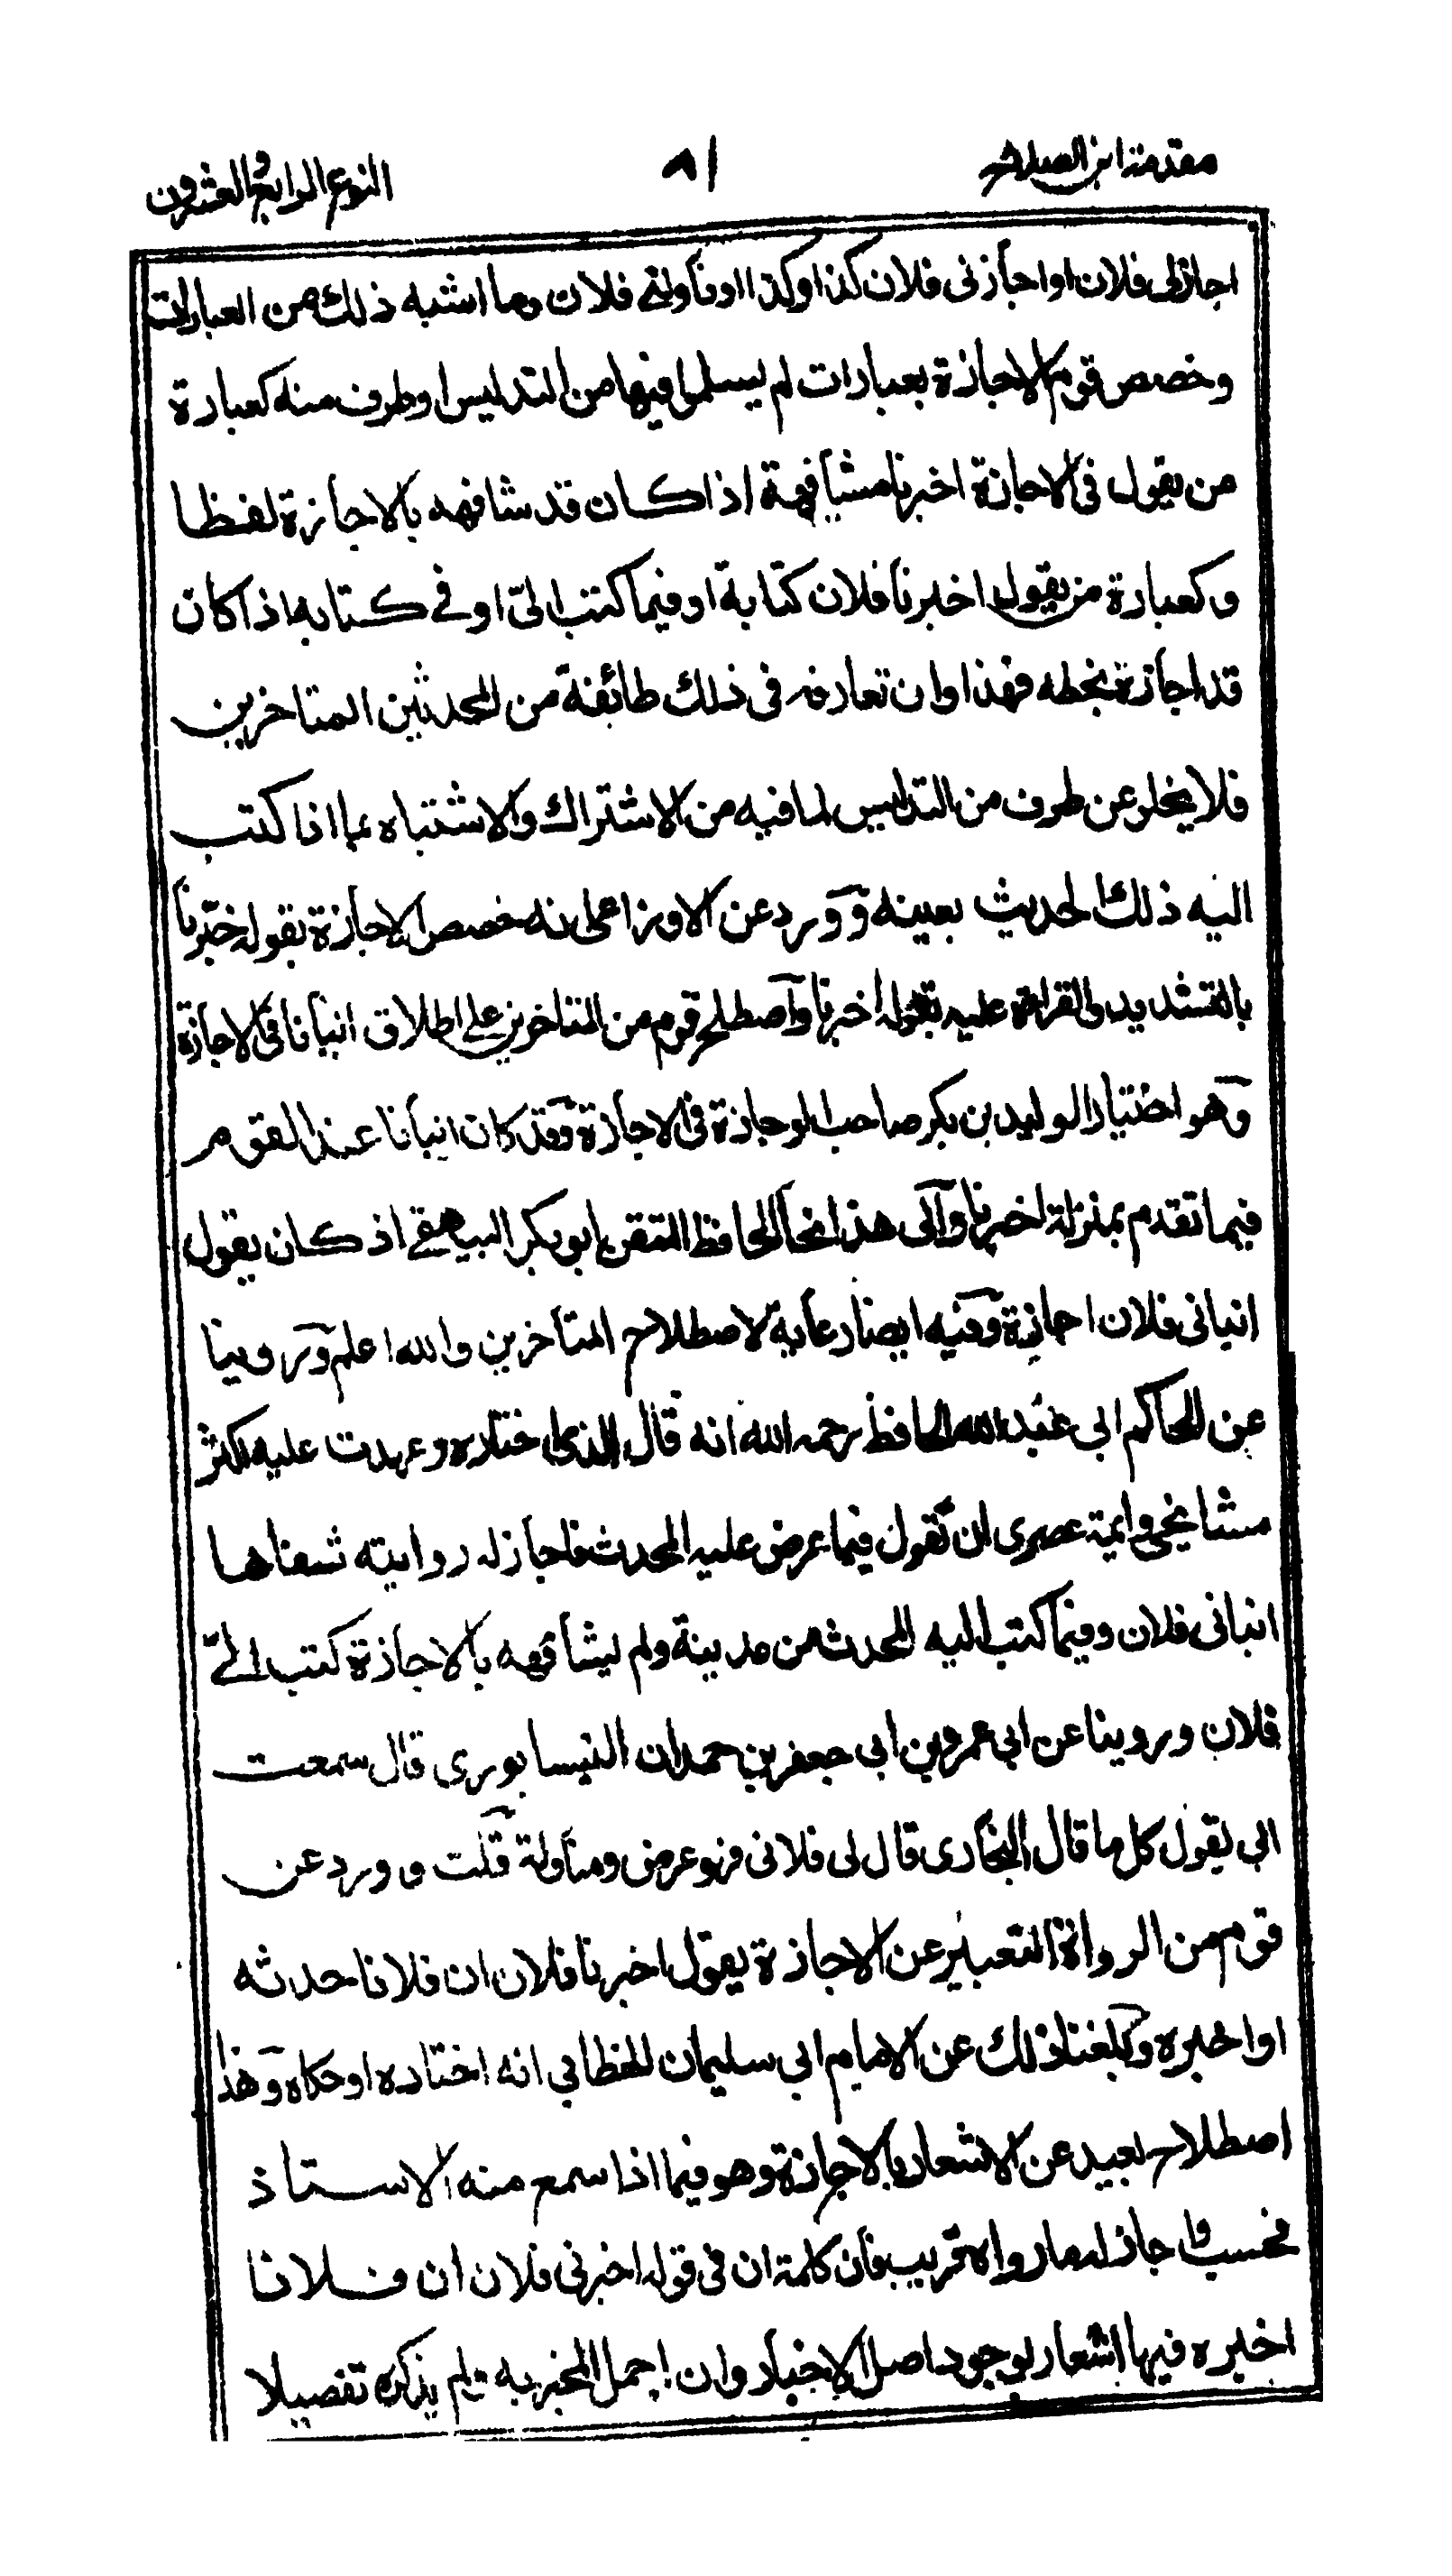 مقدمة ابن الصلاح
٨١
النوع الرابع والعشرون
اجازلى فلان او اجازنى فلان كذا وكذا او ناولنى فلان وما اشبه ذلك من العبارات
وخصص قوم الاجازة بعبارات لم يسلموا فيها من التدليس او طرف منه كعبارة
من يقول فى الاجازة اخبرنا مشافهة اذا كان قد شافهه بالاجازة لفظا
وكعبارة من يقول اخبرنا فلان كتابة او فيما كتب الىّ او فے كتابه اذا كان
قد اجازة بخطه فهذا وان تعارفه فى ذلك طائفة من المحدثين المتاخرين
فلا يخلو عن طرف من التدليس لما فيه من الاشتراك والاشتباه بما اذا كتب
اليه ذلك الحديث بعينه وورد عن الاوزاعى انه خصص الاجازة بقوله خبّرنا
بالتشديد والقراءة عليه بقوله اخبرنا واصطلح قوم من المتاخرين على اطلاق انبانا فى الاجازة
وهو اختيار الوليد بن بكر صاحب الوجازة فى الاجازة وقد كان انبانا عند القوم
فيما تقدم بمنزلة اخبرنا والى هذا نحا الحافظ المتقن ابو بكر البيهقے اذ كان يقول
انبانى فلان اجازة وفيه ايضا رعاية لاصطلاح المتاخرين والله اعلم وروينا
عن الحاكم ابى عبد الله الحافظ رحمه الله انه قال الذى اختاره وعهدت عليه اكثر
مشايخى وايمة عصرى ان نقول فيما عرض على المحدث فاجاز له روايته شفاها
انبانى فلان وفيما كتب اليه المحدث من مدينة ولم يشافهه بالاجازة كتب الىّ
فلان وروينا عن ابى عمرو بن ابى جعفر بن حمدان النيسابورى قال سمعت
ابى يقول كل ما قال البخارى قال لى فلانى فهو عرض ومناولة قلت وورد عن
قوم من الرواة التعبير عن الاجازة بقول اخبرنا فلان ان فلانا حدثه
او اخبره وبلغنا ذلك عن الامام ابى سليمان الخطابي انه اختاره او حكاه وهذا
اصطلاح بعيد عن الاشعار بالاجازة وهو فيما اذا سمع منه الاستاذ
فحسب واجاز له ما رواه قريب فان كلمة ان فى قوله اخبرنى فلان ان فلانا
اخبره فيها اشعار بوجود اصل الاخبار وان اجمل المخبر به ولم يذكره تفصيلا